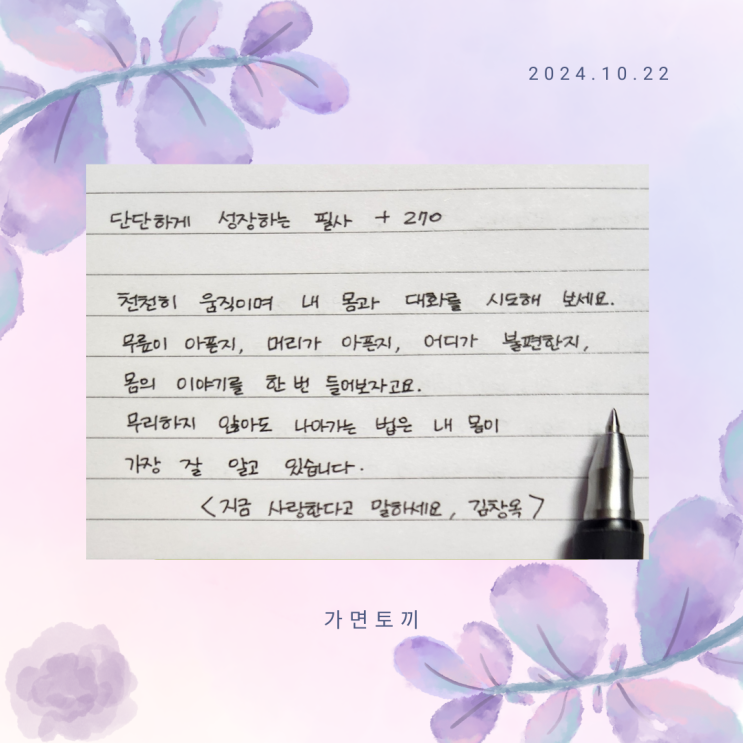 2024.10.22
단단하게 성장하는 필사 + 270
천천히 움직이며 내 몸과 대화를 시도해 보세요.
무릎이 아픈지, 머리가 아픈지, 어디가 불편한지,
몸의 이야기를 한 번 들어보자고요.
무리하지 않아도 나아가는 법은 내 몸이
가장 잘 알고 있습니다.
<지금 사랑한다고 말하세요, 김창옥>
가면토끼